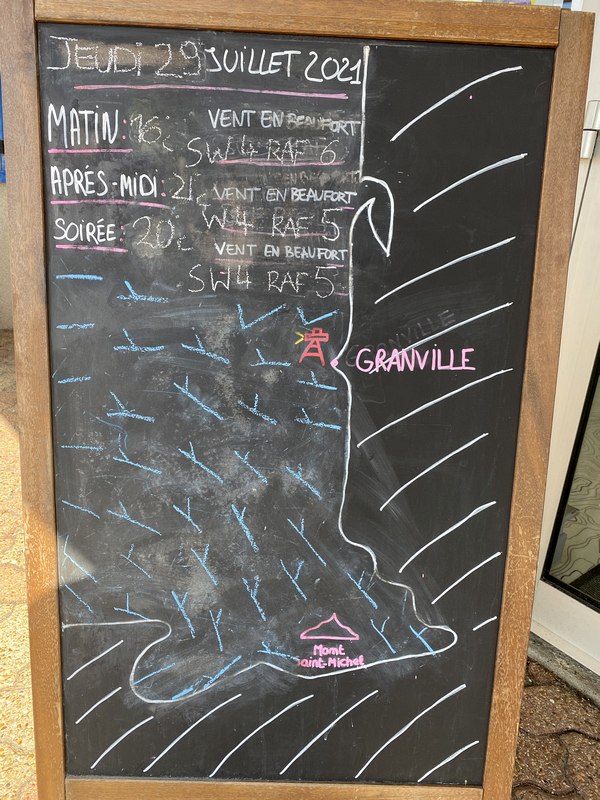 JEUDI 29 JUILLET 2021
MATIN: 16°c VENT EN BEAUFORT
SW 4 RAF 6
APRÉS-MIDI: 21°c VENT EN BEAUFORT
W 4 RAF 5
SOIRÉE: 20°c VENT EN BEAUFORT
SW 4 RAF 5
GRANVILLE
GRANVILLE
Mont
Saint-Michel